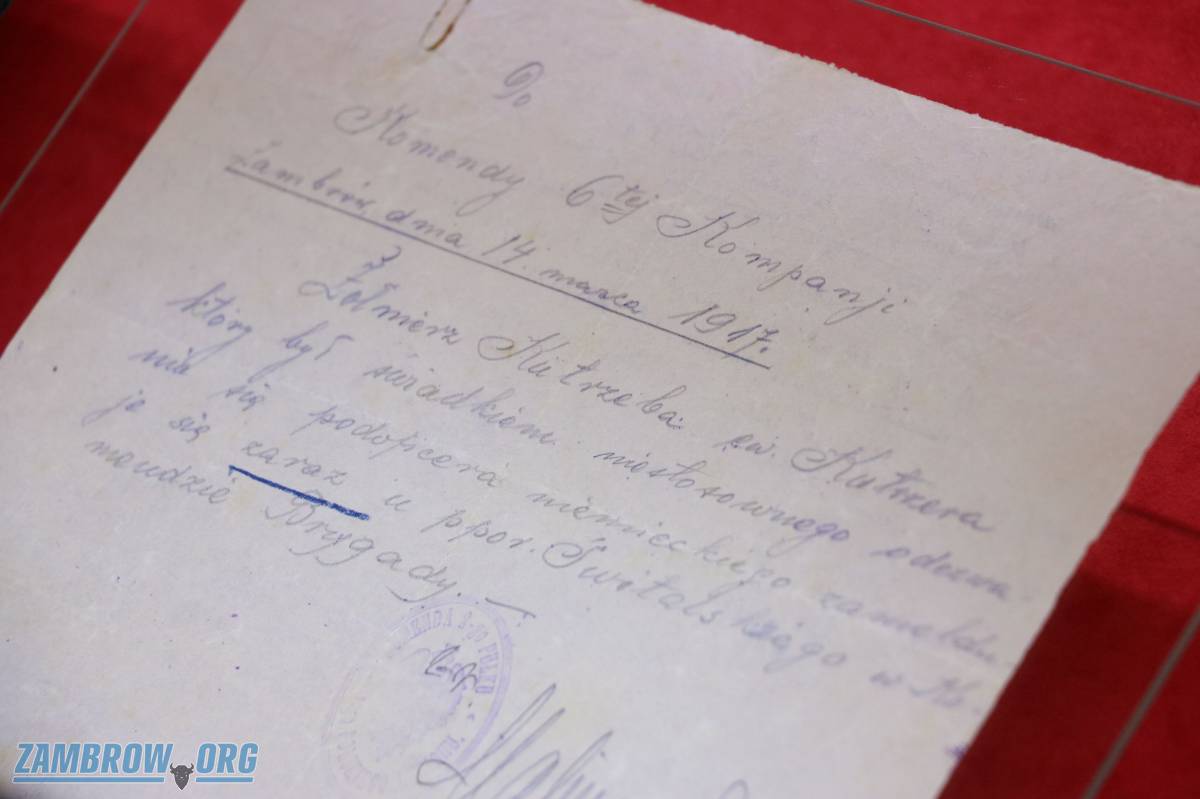 Do
Komendy 6tej Kompanji
Zambrów, dnia 14. marca 1917.
Żołnierz Kutrzeba ew. Kutzera
który był świadkiem niestosownego odezwa
nia się podoficera niemieckiego zameldu
je się zaraz u ppor. Świtalskiego w Ko-
mendzie Brygady. —
KOMENDA 2-GO PUŁKU
ZAMBROW.ORG